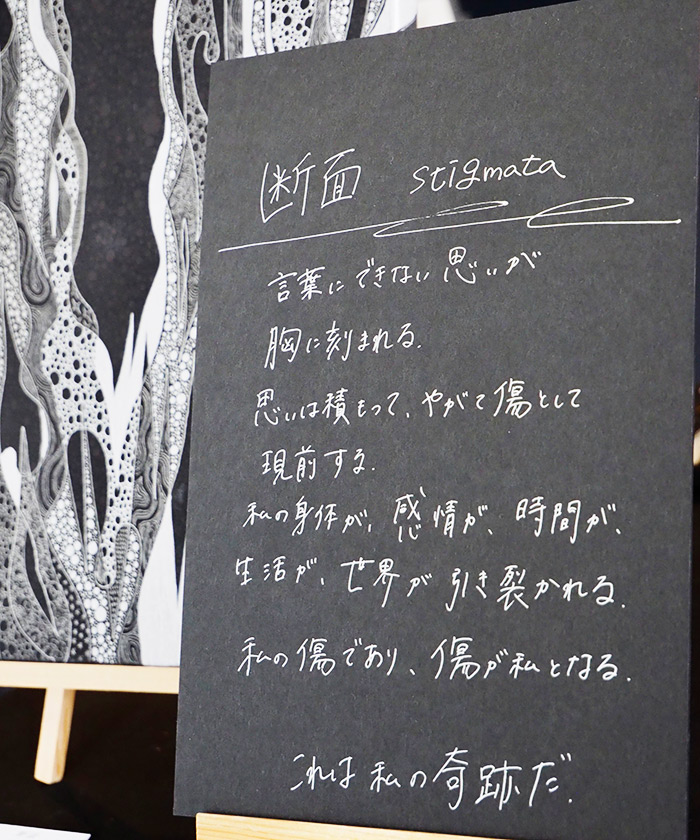 断面 stigmata
言葉にできない思いが
胸に刻まれる.
思いは積もって、やがて傷として
現前する.
私の身体が、感情が、時間が、
生活が、世界が引き裂かれる.
私の傷であり、傷が私となる.
これは私の奇跡だ.